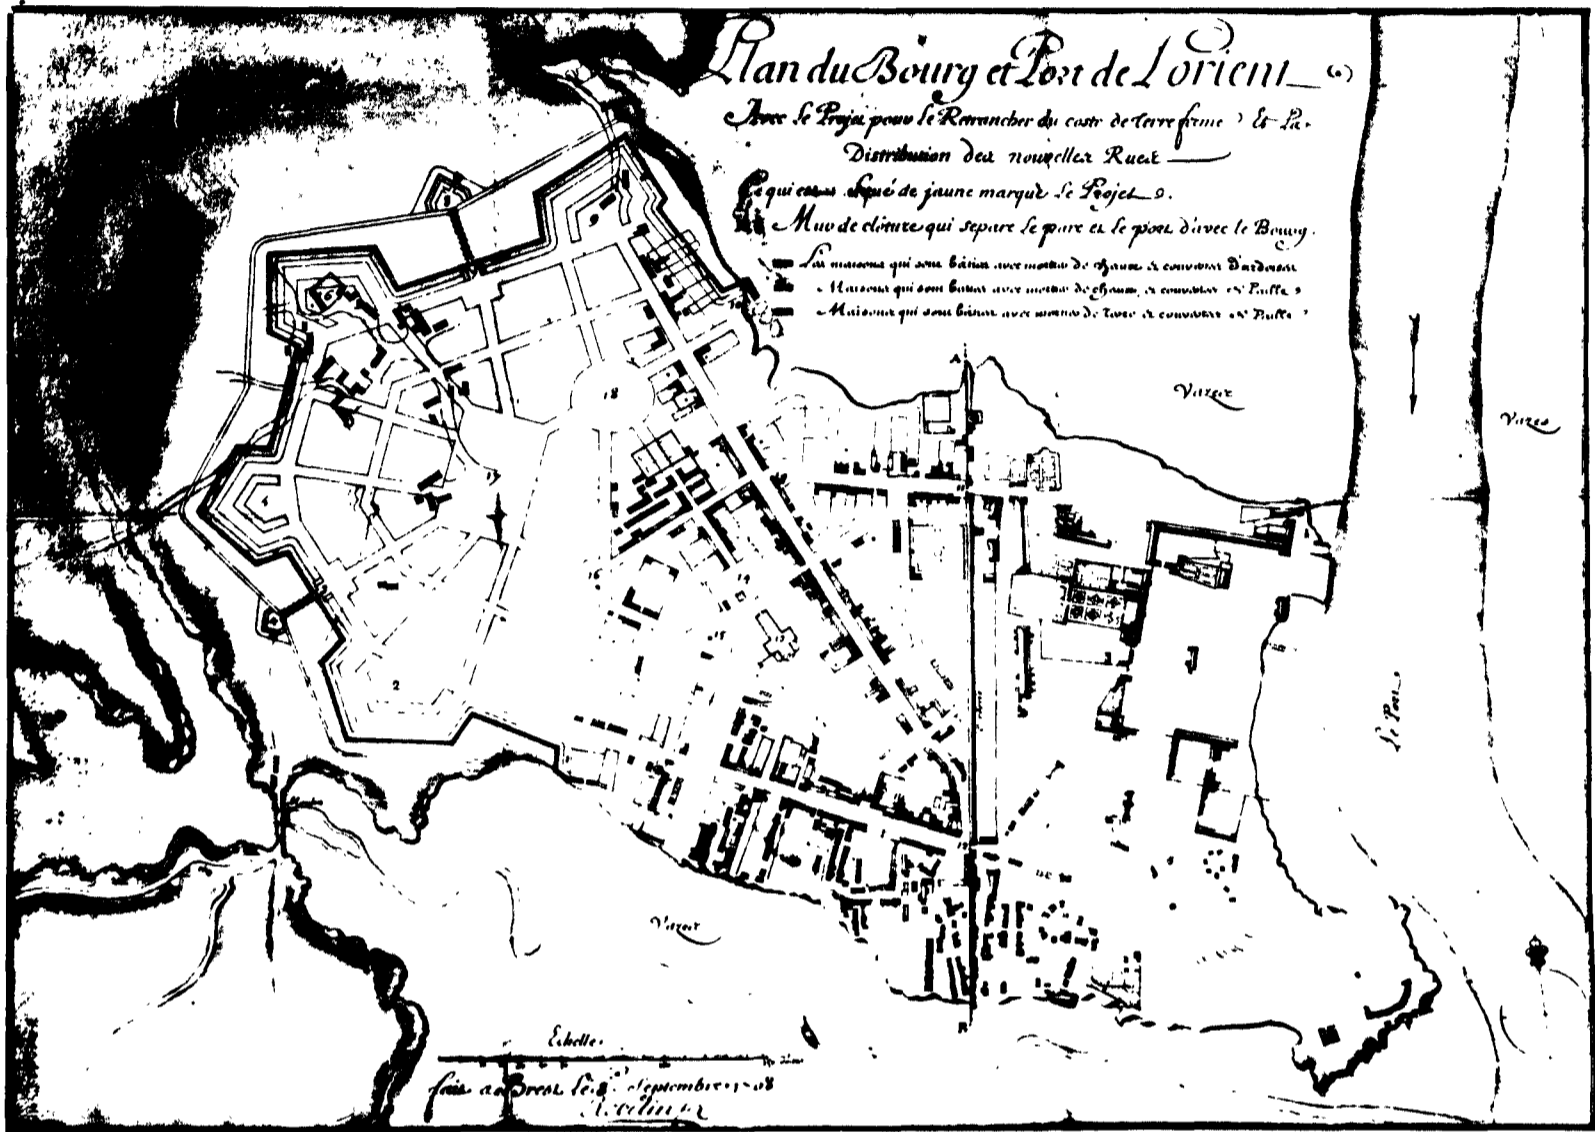 Plan du Bourg et Port de Lorient
Avec le Projet pour le Retrancher du costé de terre ferme Et La
Distribution des nouvelles Rues
Ce qui est de jaune marque le Projet
Mur de clôture qui separe le parc et le port d'avec le Bourg.
Les maisons qui sont baties avec mortier de chaux et couvertes d'ardoises
Maisons qui sont baties avec mortier de chaux, et couvertes de Paille
Maisons qui sont baties avec mortier de terre et couvertes de Paille
A
Vazes
Vazes
6
9
18
17
1
16
14
15
13
2
Le Port
Vazes
B
Echelle
fait a Brest le 8 Septembre 1708
Robelin